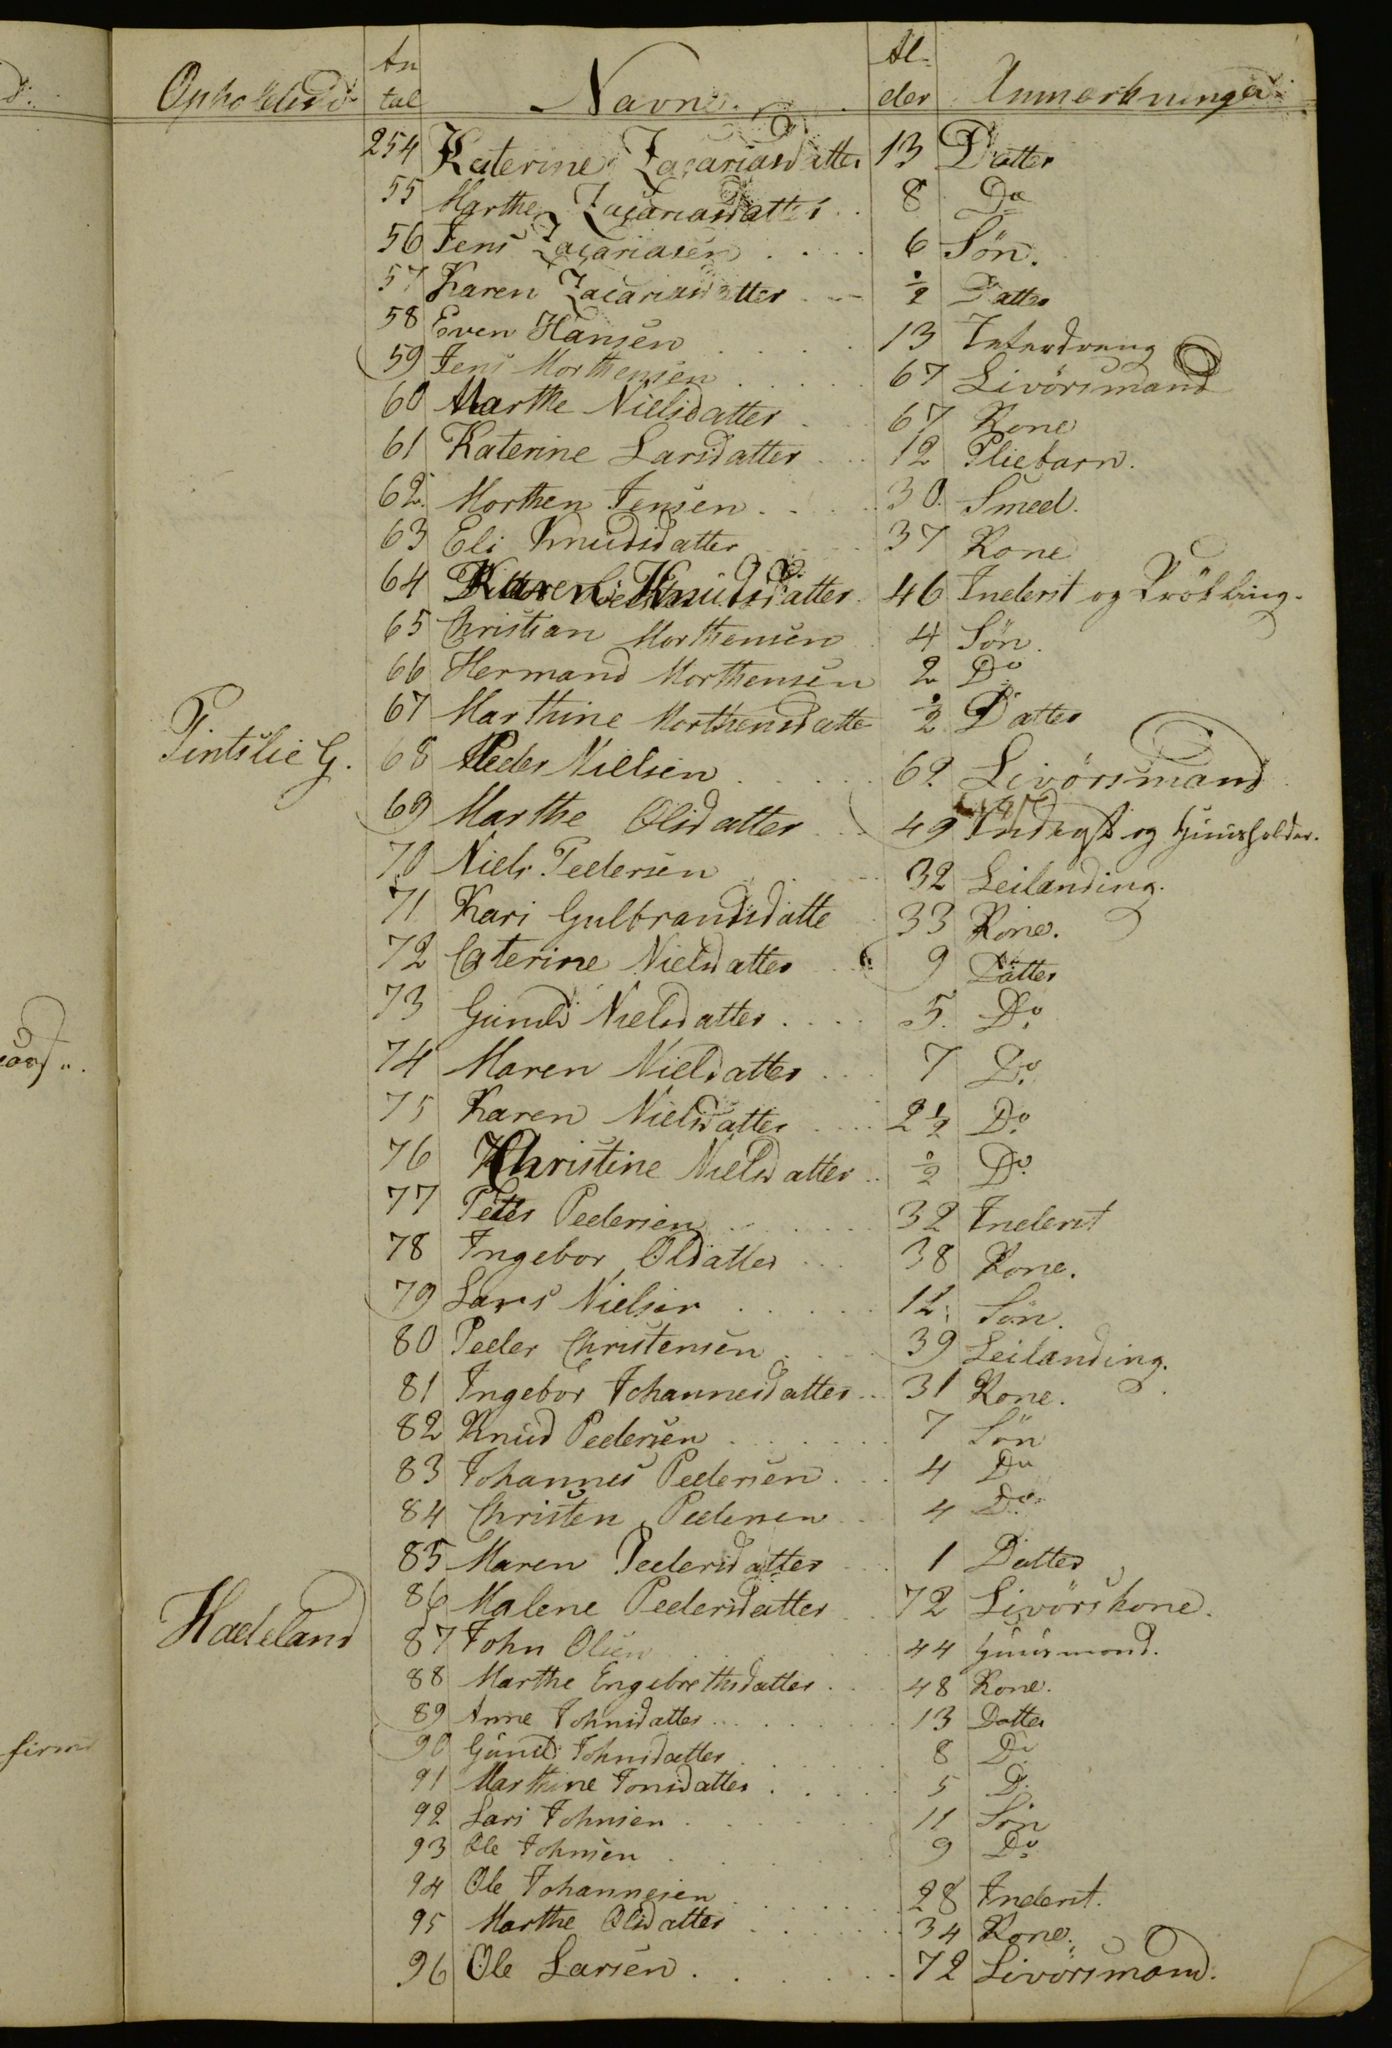 Opholdsted An tal Navne. Al- der Anmerkninger
254 Katerine Zacariasdatter 13 Datter
55 Marthe Zacariasdatter . 8 Do
56 Jens Zacariasen . . . . 6 Sön.
57 Karen Zacariasdatter . . - ½ Datter
58 Even Hansen . . . . 13
59 Jens Morthensen . . . . . 67 Livörsmand
60 Marthe Nielsdatter . . 67 Kone
61 Katerine Larsdatter . . . 12 Pliebarn.
62. Morthen Jensen . . . . 30. Smed.
63 Eli Knudsdatter 37 Kone
64 Karen Knudsdatter 46 Inderst og Krökling.
65 Christian Morthensen 4 Sön.
66 Hermand Morthensen 2 Do
67 Marthine Morthensdatte ½ Datter
Tintslie G. 68 Peder Nielsen . . . . . 62 Livörsmand
69 Marthe Olsdatter . . . 49 og Huusholder.
70 Niels Pedersen . . - 32 Leilænding.
71 Kari Gulbrandsdatte 33 Kone.
72 Caterine Nielsdatter . . 9 Datter
73 Gunild Nielsdatter . . . . 5. Do
74 Maren Nielsdatter . . . 7 Do
75 Karen Nielsdatter . . . . 2½ Do
76 Christine Nielsdatter . . ½ Do
77 Peder Pedersen . . . . . . 32 Inderst
78 Ingebor Olsdatter . . . 38 Kone.
79 Lars Nielsen . . . . . 12. Sön.
80 Peder Christensen . . . . 39 Leilænding.
81 Ingebor Johannesdatter . . 31 Kone.
82 Knud Pedersen . . . . . . 7 Sön
83 Johannes Pedersen . . . 4 Do
84 Christen Pedersen . . 4 Do
85 Maren Pedersdatter . . . 1 Datter
86 Malene Pedersdatter . . 72 Livörskone.
Hadeland 87 John Olsen . . . . . 44 Huusmand.
88 Marthe Engebrethsdatter . . 48 Kone.
89 Anne Johnsdatter . . . . . . . 13 Datter
90 Gunild Johnsdatter . . . . . 8 Do
91 Marthine Jonsdatter . . . . . 5 D.
92 Lars Johnsen . . . . . . . 11 Sön
93 Ole Johnsen . . . . . . 9 Do
94 Ole Johannesen . . . . . . 28 Inderst.
95 Marthe Olsdatter . . . . . . 34 Kone.
96 Ole Larsen . . . . . . . 72 Livörsmand.